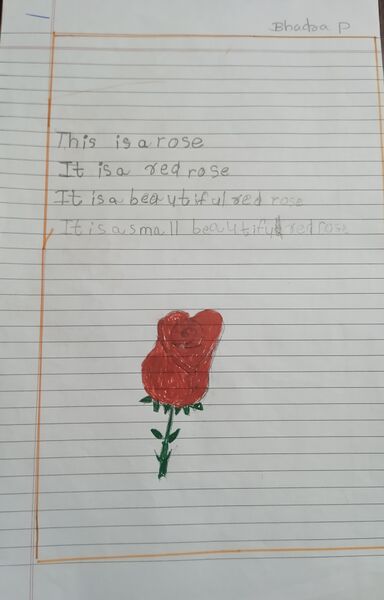 Bhadra P
This is a rose
It is a red rose
It is a beautiful red rose
It is a small beautiful red rose